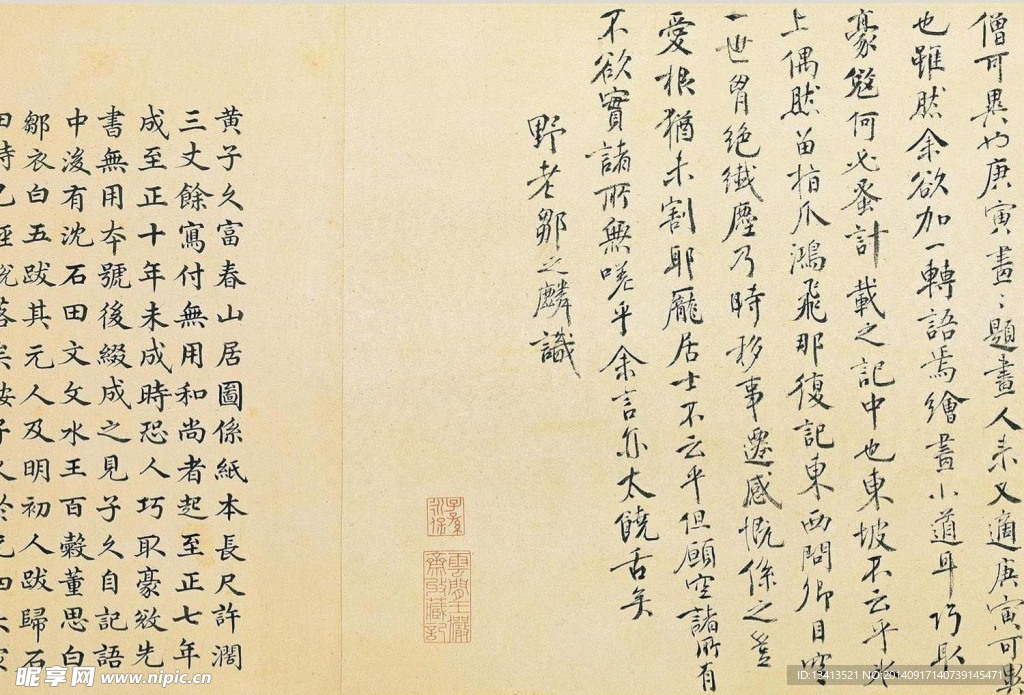 僧可異也庚寅畫〻題畫人來又適庚寅可異
也雖然余欲加一轉語焉繪畫小道耳巧取
豪奪何必蚤計載之記中也東坡不云乎冰
上偶然留指爪鴻飛那復記東西問卿目空
一世胷絕纎塵乃時移事遷感慨係之豈
愛根猶未割耶龐居士不云乎但願空諸所有
不欲實諸所無嗟乎余言亦太饒舌矣
野老鄒之麟識
黃子久富春山居圖係紙本長尺許濶
三丈餘寫付無用和尚者起至正七年
成至正十年未成時恐人巧取豪敚先
書無用本號後綴成之見子久自記語
中後有沈石田文文水王百穀董思白
鄒衣白五跋其元人及明初人跋歸石
田時已經脫落矣按子久於元四大家
雲間王儼
齋攷藏記
昵享网 www.nipic.cn
ID:13413521 NO:20140917140739145471